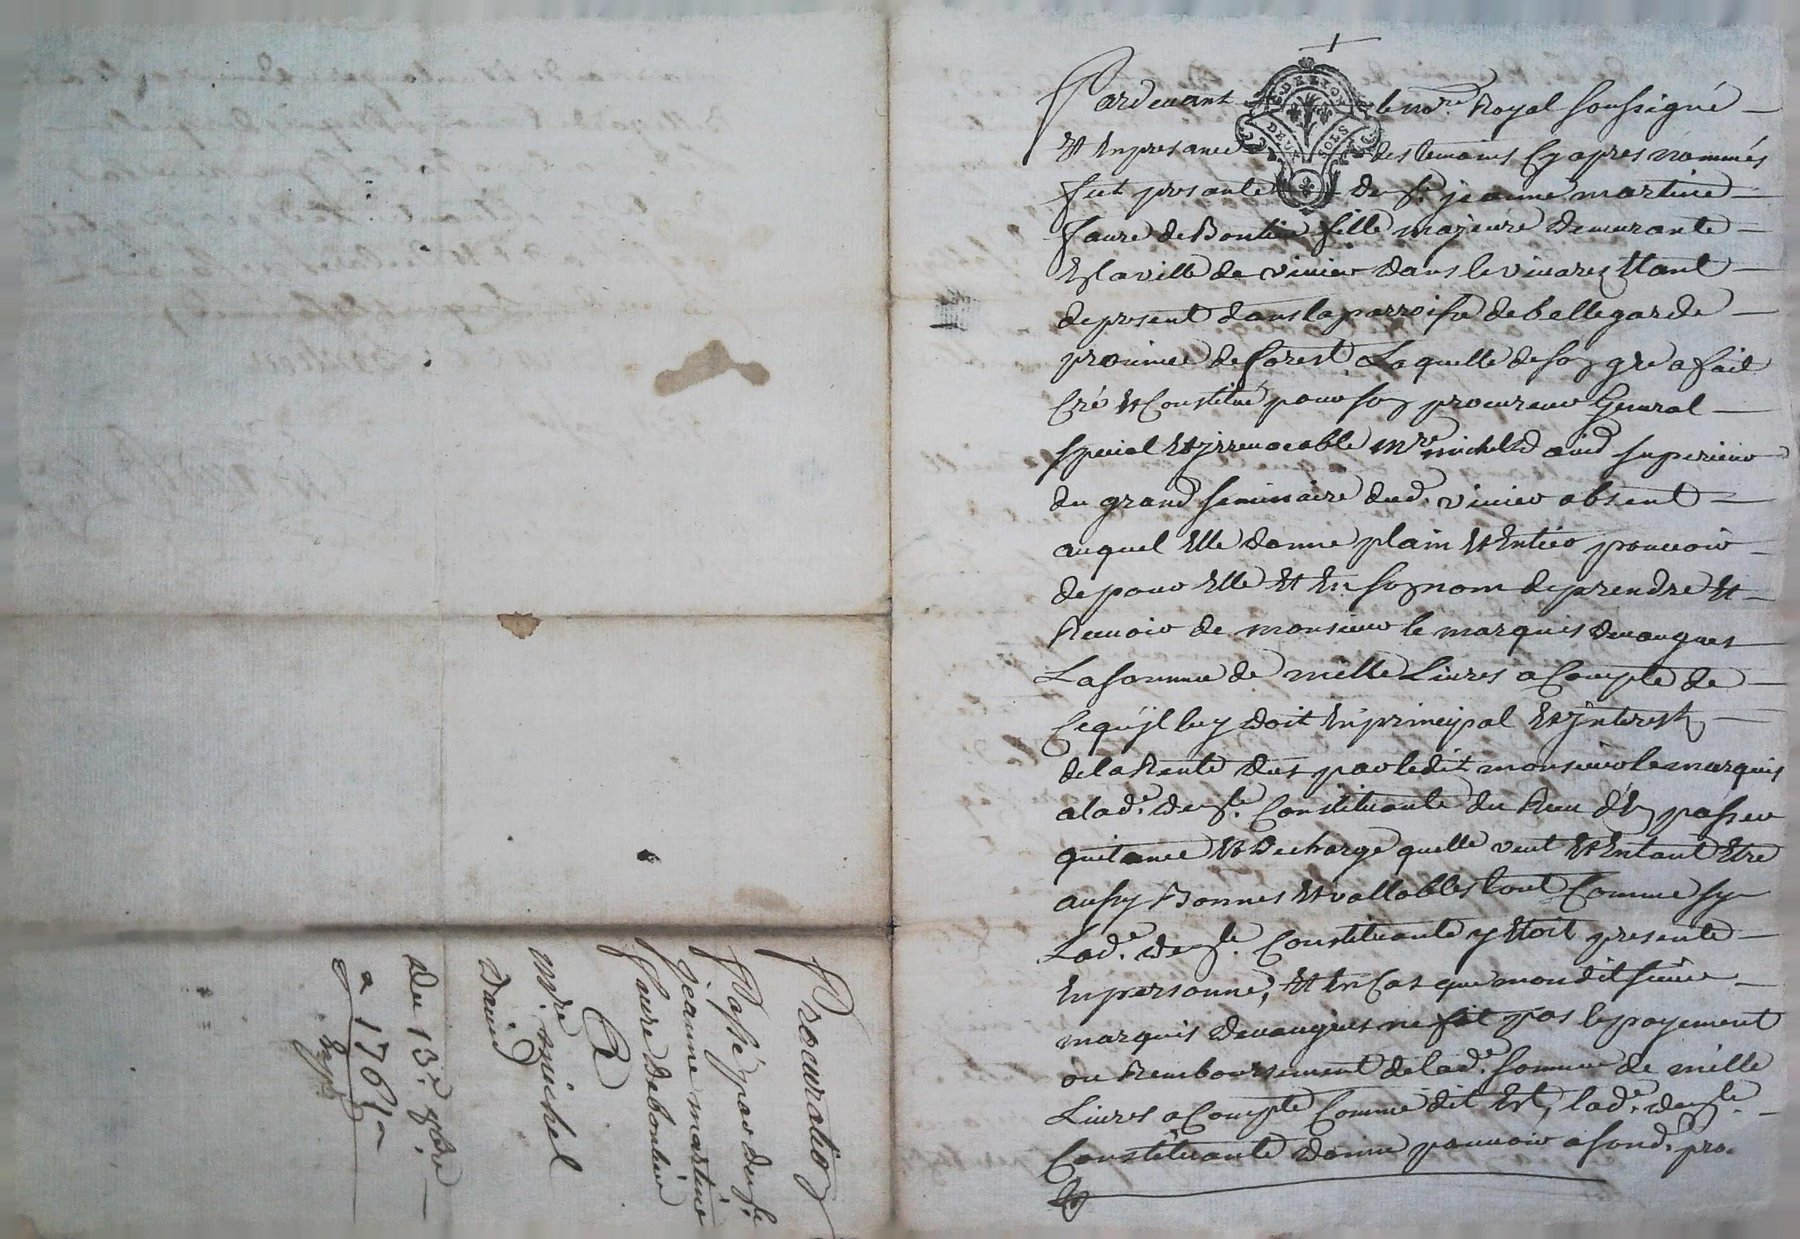 Pardevant le no.re Royal soussigné
Et En presance des temoins Cy apres nommés
fut presante de.lle jeanne martine
faure de Bontin fille majeure demurante
En la ville de vivier dans le vivares Etant
de present dans la parroisse de bellegarde
province de forest, Laquelle de son gre a fait
Cré et Constitué pour son procureur General
special et jrrevocable m.re michel david superieur
du grand seminaire dud. vivier absent
auquel Elle donne plain et Entier pouvoir
de pour Elle Et En son nom de prendre Et
Recevoir de monsieur le marquis devangues
La somme de mille Livres a Compte de
Ce qu'jl luy doit En principal et jnterest
de la Rente dues par ledit monsieur le marquis
a lad.e de.lle Constituante du Recu d'En passer
quitance Et decharge quelle veut Et Entant Etre
aussy Bonnes Et vallables tout Comme sy
Lad.e de.lle Constituante y Etoit presente
En personne, Et En Cas que mondit sieur
marquis devangues ne fit pas le payement
ou Remboursement de lad.e somme de mille
Livres a Compte Comme dit Est, lad.e de.lle
Constituante donne pouvoir a sond. pro.
DEUX SOLS
Procuration
Passé par de.lle
Jeanne martine
Faure de bontin
A
m.re michel
David
Du 13.e 9bre
1761